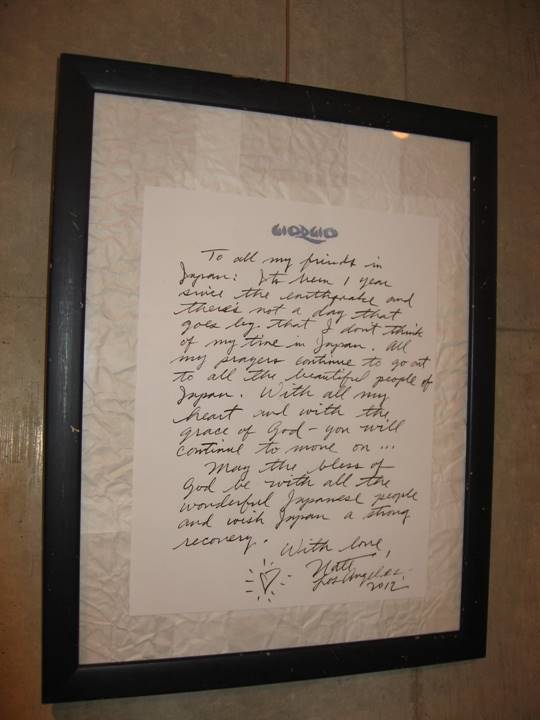 GIORGIO
To all my friends in
Japan: It's been 1 year
since the earthquake and
there's not a day that
goes by that I don't think
of my time in Japan. All
my prayers continue to go out
to all the beautiful people of
Japan. With all my
heart and with the
grace of God - you will
continue to move on...
May the bless of
God be with all the
wonderful Japanese people
and wish Japan a strong
recovery. With love,
2012